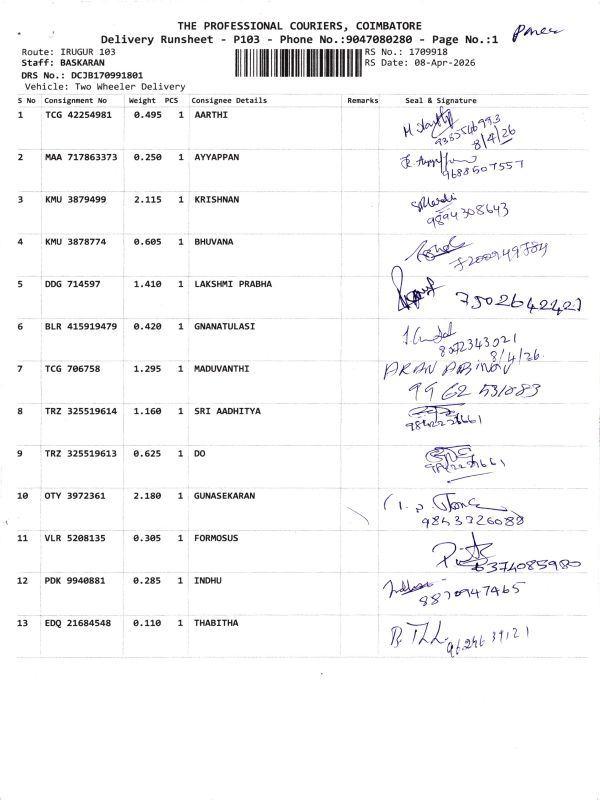 THE PROFESSIONAL COURIERS, COIMBATORE
Delivery Runsheet - P103 - Phone No.:9047080280 - Page No.:1
Route: IRUGUR 103 RS No.: 1709918
Staff: BASKARAN RS Date: 08-Apr-2026
DRS No.: DCJB170991801
Vehicle: Two Wheeler Delivery
S No Consignment No Weight PCS Consignee Details Remarks Seal & Signature
1 TCG 42254981 0.495 1 AARTHI
8/4/26
2 MAA 717863373 0.250 1 AYYAPPAN
9688507557
3 KMU 3879499 2.115 1 KRISHNAN
9894308643
4 KMU 3878774 0.605 1 BHUVANA
7200949784
5 DDG 714597 1.410 1 LAKSHMI PRABHA 7502642421
6 BLR 415919479 0.420 1 GNANATULASI
8072343021
8/4/26
7 TCG 706758 1.295 1 MADUVANTHI ARAN ABINAV
9962531083
8 TRZ 325519614 1.160 1 SRI AADHITYA
9 TRZ 325519613 0.625 1 DO
10 OTY 3972361 2.180 1 GUNASEKARAN
9843326080
11 VLR 5208135 0.305 1 FORMOSUS
6374085980
12 PDK 9940881 0.285 1 INDHU
8870947465
13 EDQ 21684548 0.110 1 THABITHA